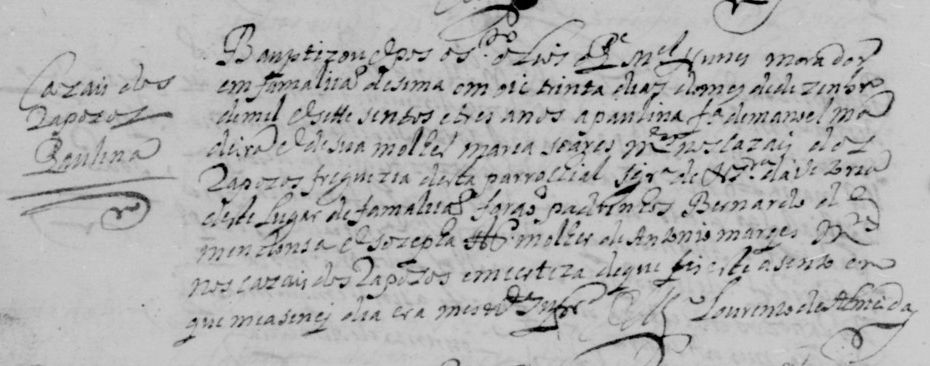 Cazais dos
Rapozos
Paulina
Bauptizou e pos os s.tos olios o P.e M.el Nunes morador
em famalicaõ desima em os trinta dias do mes de dezenbro
de mil e sette sentos e tres anos a paulina f.a de manoel ma
deira e de sua molher maria soares m.res nos cazais dos
Rapozos freguezia desta parrochial Igr.a de N. Sr.a da Vitoria
deste lugar de famalicaõ foraõ padrinhos Bernardo de
mendonsa e Jozepha molher de Antonio marques m.res
nos cazais dos Rapozos em certeza de que fis este asento em
que me asinei dia era mes ut supr.a
Lourenco de Almeida